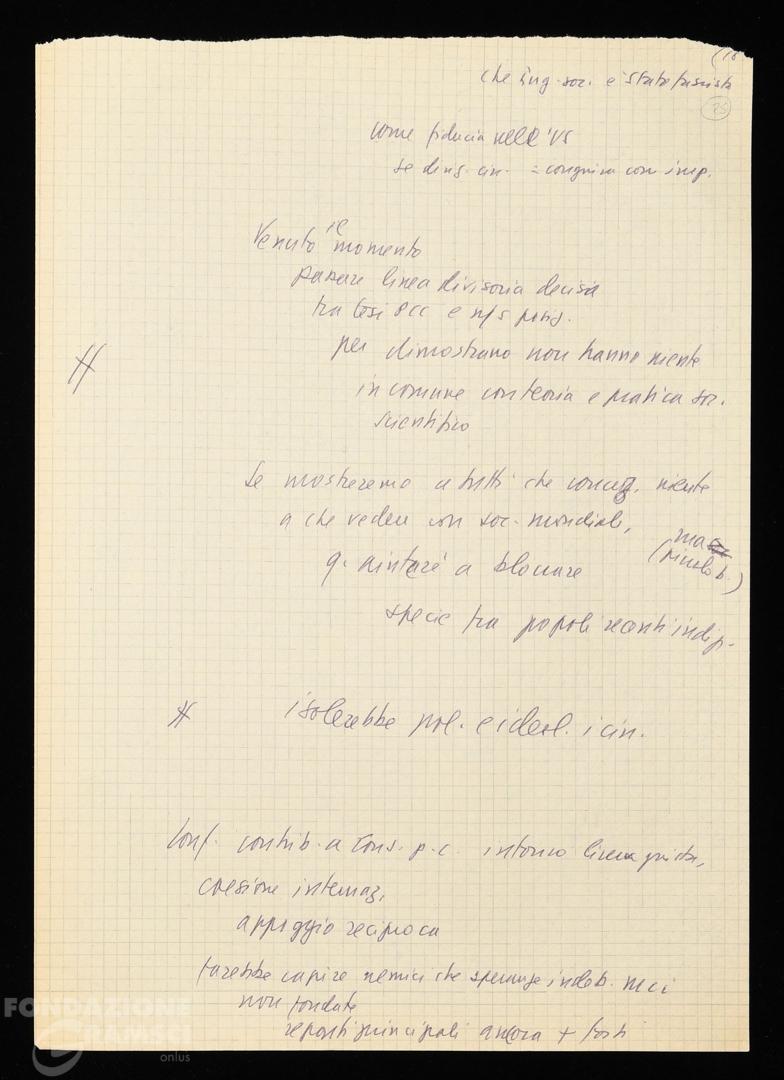 (18
che ung. soc. e stato fascista
75
come fiducia nell'US
se dirig. cin. = congiura con imp.
Venuto il momento
passare linea divisoria decisa
tra tesi PCC e n/s posiz.
per dimostrare non hanno niente
in comune con teoria e pratica soc.
scientifico
Se mostreremo a tutti che niente
a che vedere con soc. mondiale,
q. aiuterà a bloccare
specie tra popoli recenti indip.
isolerebbe pol. e ideol. i cin.
Conf. contrib. a Cons. p.c. intorno linea giusta,
coesione internaz,
appoggio reciproco
farebbe capire nemici che speranze indeb. mci
non fondate
reparti principali ancora + forti
FONDAZIONE
GRAMSCI
onlus